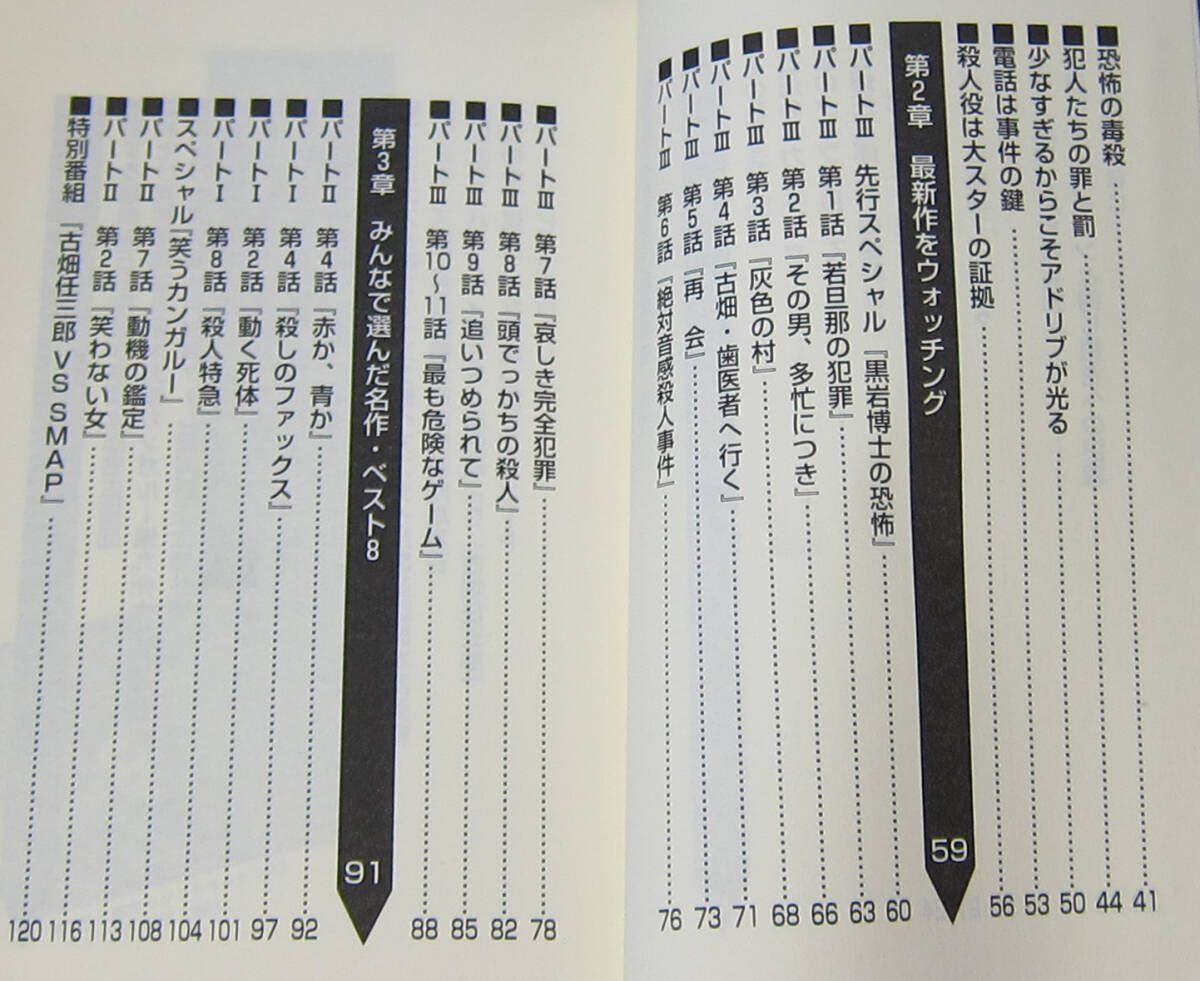 ■恐怖の毒殺 41
■犯人たちの罪と罰 44
■少なすぎるからこそアドリブが光る 50
■電話は事件の鍵 53
■殺人役は大スターの証拠 56
第2章 最新作をウォッチング 59
■パートⅢ 先行スペシャル『黒岩博士の恐怖』 60
■パートⅢ 第1話『若旦那の犯罪』 63
■パートⅢ 第2話『その男、多忙につき』 66
■パートⅢ 第3話『灰色の村』 68
■パートⅢ 第4話『古畑・歯医者へ行く』 71
■パートⅢ 第5話『再 会』 73
■パートⅢ 第6話『絶対音感殺人事件』 76
■パートⅢ 第7話『哀しき完全犯罪』 78
■パートⅢ 第8話『頭でっかちの殺人』 82
■パートⅢ 第9話『追いつめられて』 85
■パートⅢ 第10〜11話『最も危険なゲーム』 88
第3章 みんなで選んだ名作・ベスト8 91
■パートⅡ 第4話『赤か、青か』 92
■パートⅠ 第4話『殺しのファックス』 97
■パートⅠ 第2話『動く死体』 101
■パートⅠ 第8話『殺人特急』 104
■スペシャル『笑うカンガルー』 108
■パートⅡ 第7話『動機の鑑定』 113
■パートⅡ 第2話『笑わない女』 116
■特別番組 『古畑任三郎 VS SMAP』 120